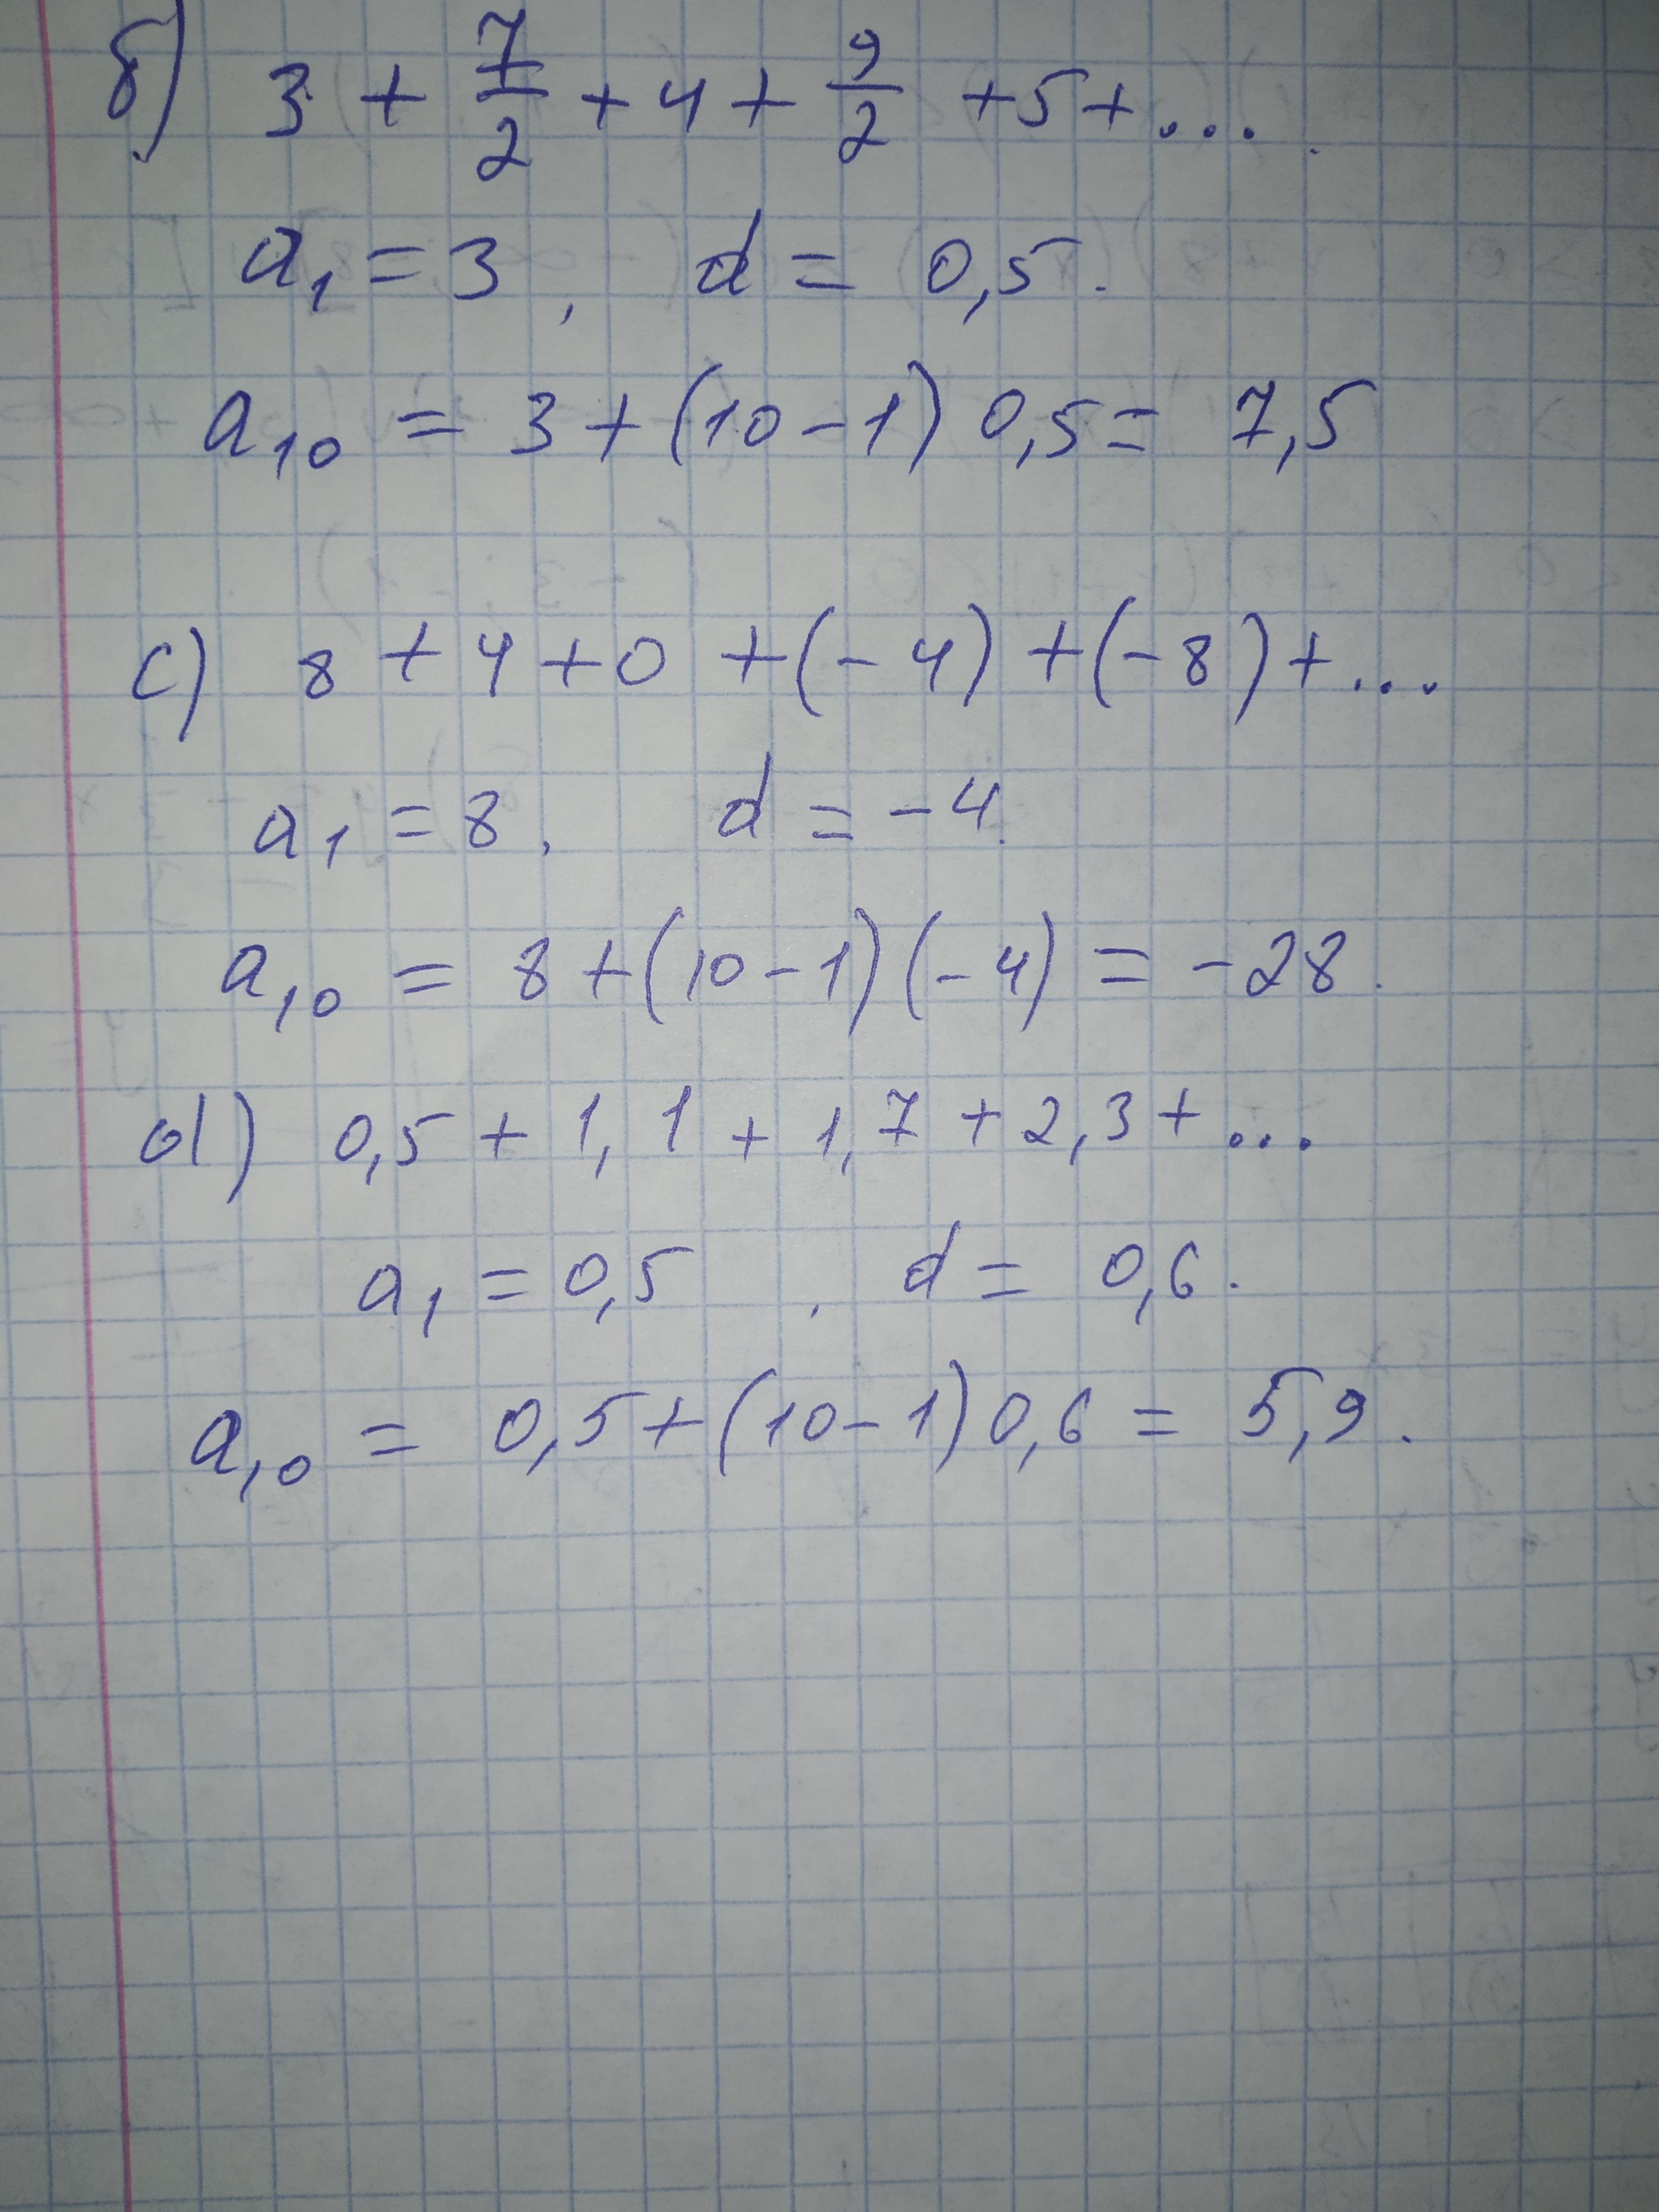 б) 3 + 7/2 + 4 + 9/2 + 5 + ...
a₁ = 3, d = 0,5.
a₁₀ = 3 + (10 - 1) 0,5 = 7,5
c) 8 + 4 + 0 + (- 4) + (- 8) + ...
a₁ = 8, d = - 4.
a₁₀ = 8 + (10 - 1) (- 4) = - 28.
d) 0,5 + 1,1 + 1,7 + 2,3 + ...
a₁ = 0,5, d = 0,6.
a₁₀ = 0,5 + (10 - 1) 0,6 = 5,9.